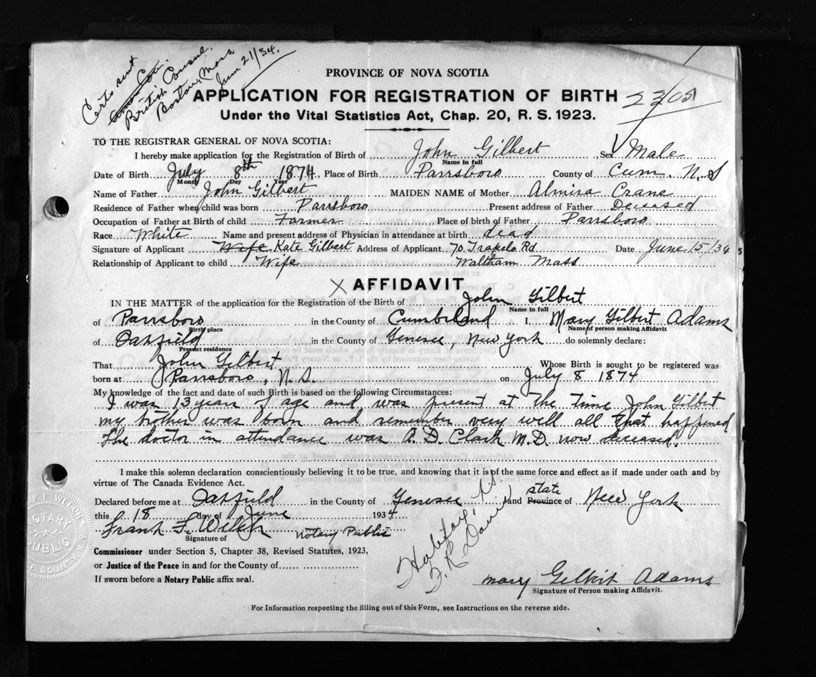 Cert sent
British Consul.
Boston, Mass
June 21/34.
PROVINCE OF NOVA SCOTIA
APPLICATION FOR REGISTRATION OF BIRTH
Under the Vital Statistics Act, Chap. 20, R. S. 1923.
TO THE REGISTRAR GENERAL OF NOVA SCOTIA:
I hereby make application for the Registration of Birth of John Gilbert Sex Male
Name in full
Date of Birth July 8th 1874 Place of Birth Parrsboro County of Cum. N.S
Month Day Year
Name of Father John Gilbert MAIDEN NAME of Mother Almira Crane
Residence of Father when child was born Parrsboro Present address of Father Deceased
Occupation of Father at Birth of child Farmer Place of birth of Father Parrsboro
Race White Name and present address of Physician in attendance at birth dead
Signature of Applicant Wife Kate Gilbert Address of Applicant 70 Trapelo Rd Date June 15/34
Relationship of Applicant to child Wife Waltham Mass
X AFFIDAVIT
IN THE MATTER of the application for the Registration of the Birth of John Gilbert
Name in full
of Parrsboro in the County of Cumberland I, Mary Gilbert Adams
Birth place Name of person making Affidavit
of in the County of Genesee, New York do solemnly declare:
Present residence
That John Gilbert Whose Birth is sought to be registered was
born at Parrsboro, N.S. on July 8 1874
My knowledge of the fact and date of such Birth is based on the following Circumstances:
I was 13 years of age and was present at the time John Gilbert
my brother was born and remember very well all that happened
The doctor in attendance was A. D. Clark M.D. now deceased.
I make this solemn declaration conscientiously believing it to be true, and knowing that it is of the same force and effect as if made under oath and by
virtue of The Canada Evidence Act.
Declared before me at in the County of Genesee and state Province of New York
this 18 day of June 1934
Frank Notary Public
Signature of
Commissioner under Section 5, Chapter 38, Revised Statutes, 1923,
or Justice of the Peace in and for the County of
If sworn before a Notary Public affix seal.
Halifax, N.S.
Mary Gilbert Adams
Signature of Person making Affidavit.
For Information respecting the filling out of this Form, see Instructions on the reverse side.
NOTARY
PUBLIC